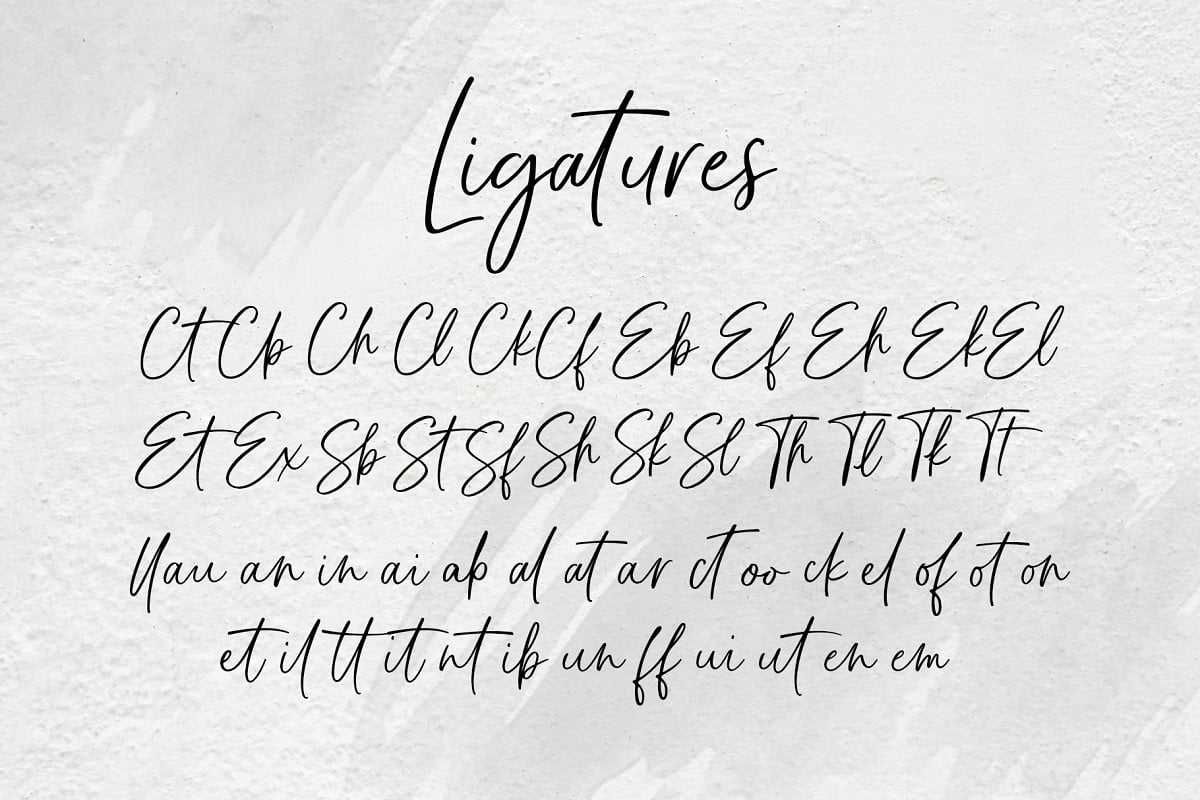 Ligatures
Ct Cb Ch Cl Ck Cf Eb Ef Eh Ek El
Et Ex Sb St Sf Sh Sk Sl Th Tl Tk Tt
ll au an in ai ab al at ar ct oo ck el of ot on
et il tt it nt ib un ff ui ut en em